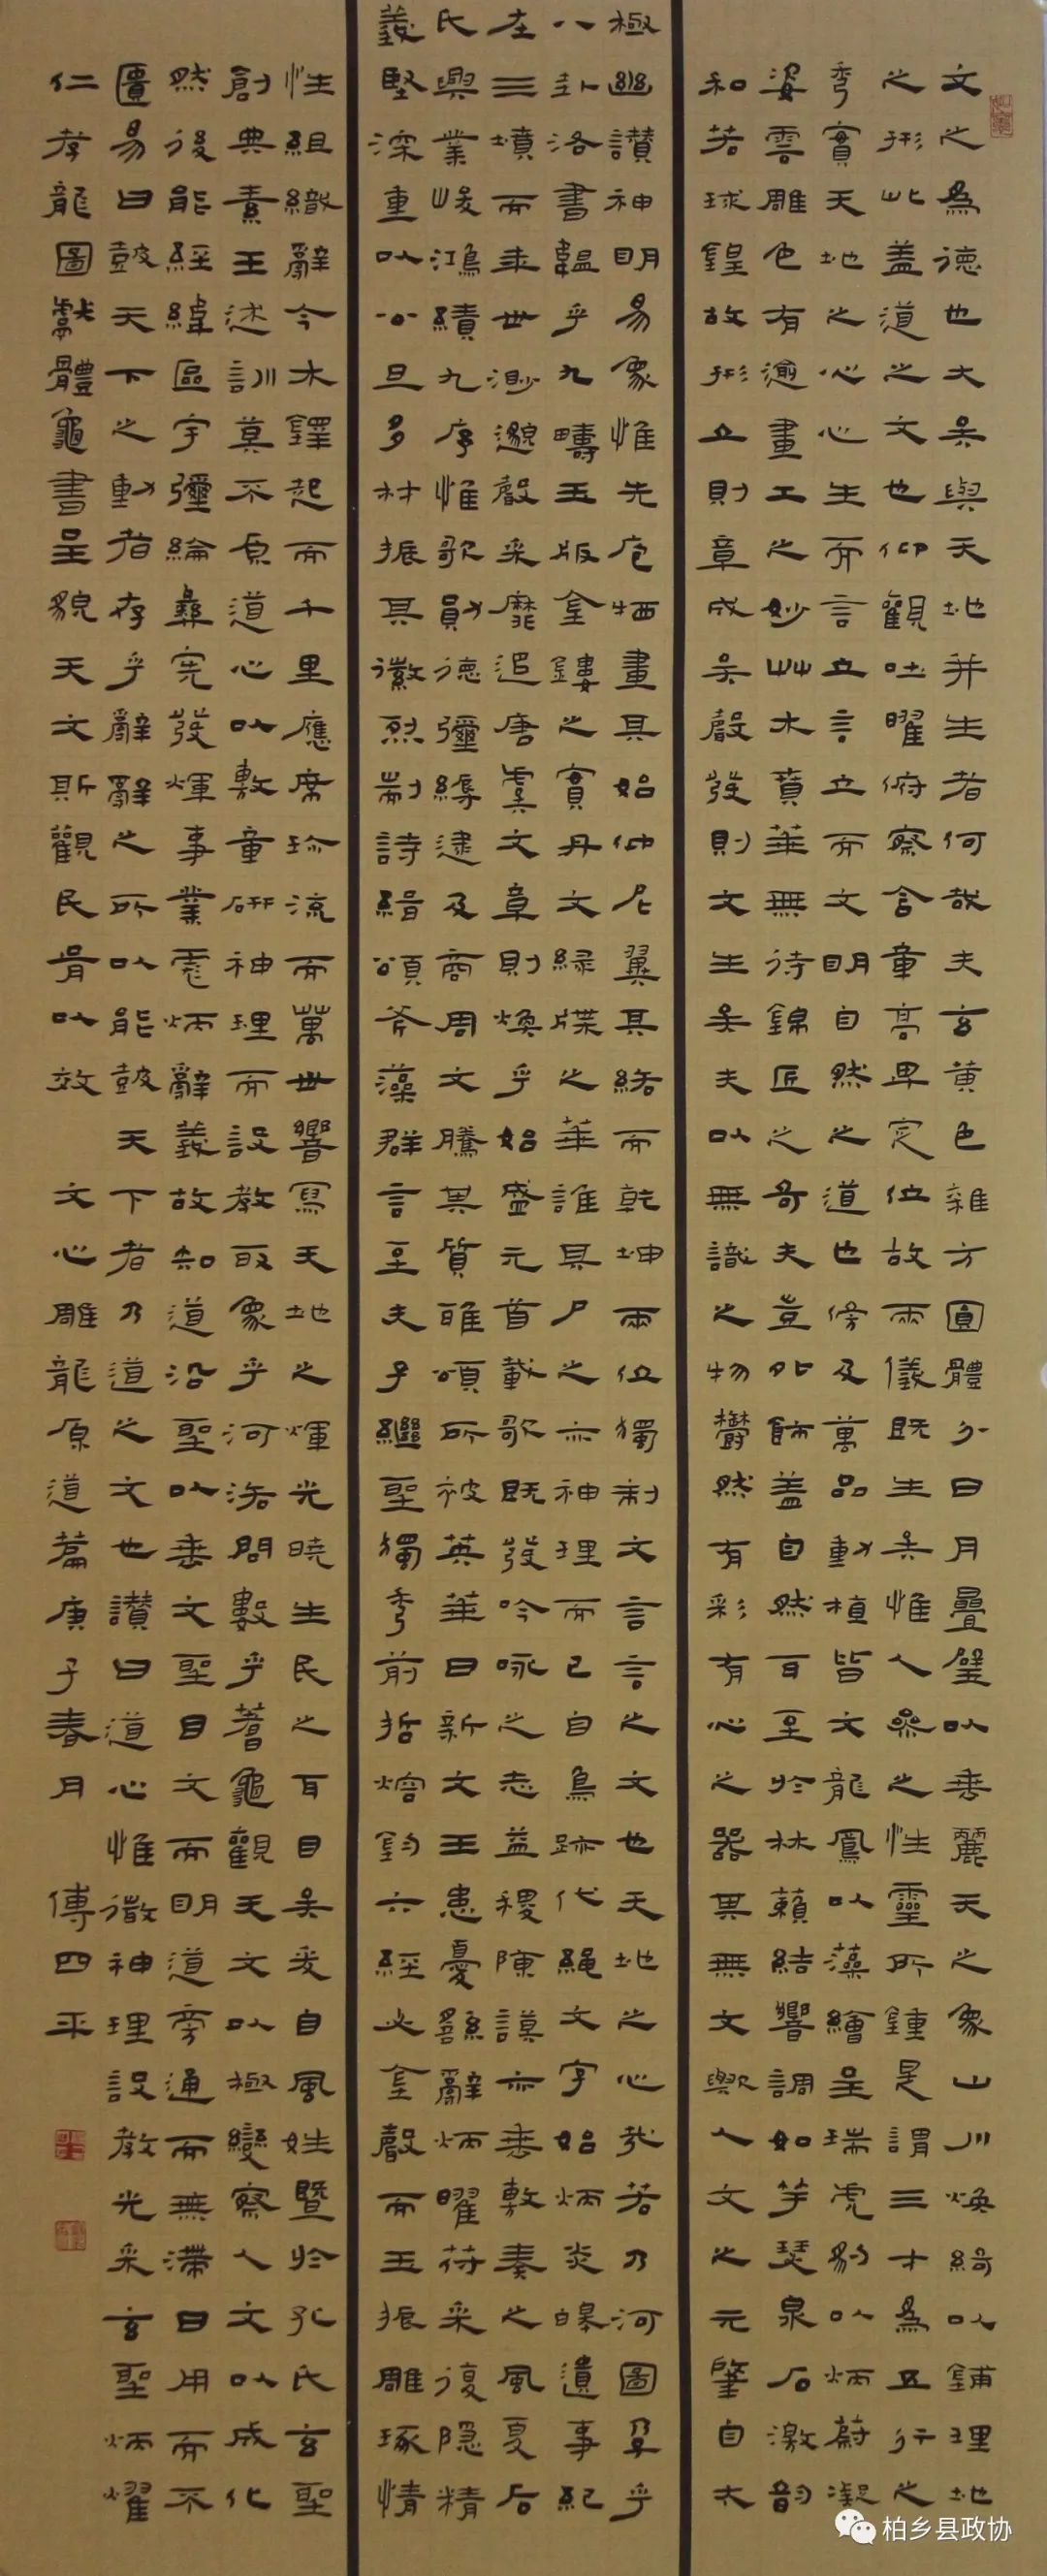 文之為德也大矣與天地并生者何哉夫玄黃色雜方圓體分日月疊璧以垂麗天之象山川煥綺以鋪理地
之形此蓋道之文也仰觀吐曜俯察含章高卑定位故兩儀既生矣惟人參之性靈所鍾是謂三才為五行之
秀實天地之心心生而言立言立而文明自然之道也傍及萬品動植皆文龍鳳以藻繪呈瑞虎豹以炳蔚凝
姿雲雕色有逾畫工之妙艸木賁華無待錦匠之奇夫豈外飾蓋自然耳至於林籟結響調如竽瑟泉石激韵
和若球鍠故形立則章成矣聲發則文生矣夫以無識之物鬱然有彩有心之器其無文歟人文之元肇自太
極幽讚神明易象惟先庖犧畫其始仲尼翼其終而乾坤兩位獨制文言言之文也天地之心哉若乃河圖孕乎
八卦洛書韞乎九疇玉版金鏤之實丹文綠牒之華誰其尸之亦神理而已自鳥跡代繩文字始炳炎皞遺事紀
在三墳而年世渺邈聲采靡追唐虞文章則煥乎始盛元首載歌既發吟咏之志益稷陳謨亦垂敷奏之風夏后
氏興業峻鴻績九序惟歌勳德彌縟逮及商周文勝其質雅頌所被英華日新文王患憂繇辭炳曜符采復隱精
義堅深重以公旦多材振其徽烈剬詩緝頌斧藻群言至夫子繼聖獨秀前哲熔鈞六經必金聲而玉振雕琢情
性組織辭令木鐸起而千里應席珍流而萬世響寫天地之輝光曉生民之耳目矣爰自風姓暨於孔氏玄聖
創典素王述訓莫不原道心以敷章研神理而設教取象乎河洛問數乎蓍龜觀天文以極變察人文以成化
然後能經緯區宇彌綸彝憲發輝事業彪炳辭義故知道沿聖以垂文聖因文而明道旁通而無滯日用而不
匱易曰鼓天下之動者存乎辭辭之所以能鼓天下者乃道之文也讚曰道心惟微神理設教光采玄聖炳耀
仁孝龍圖獻體龜書呈貌天文斯觀民胥以效 文心雕龍原道篇庚子春月 傅四平
柏乡县政协